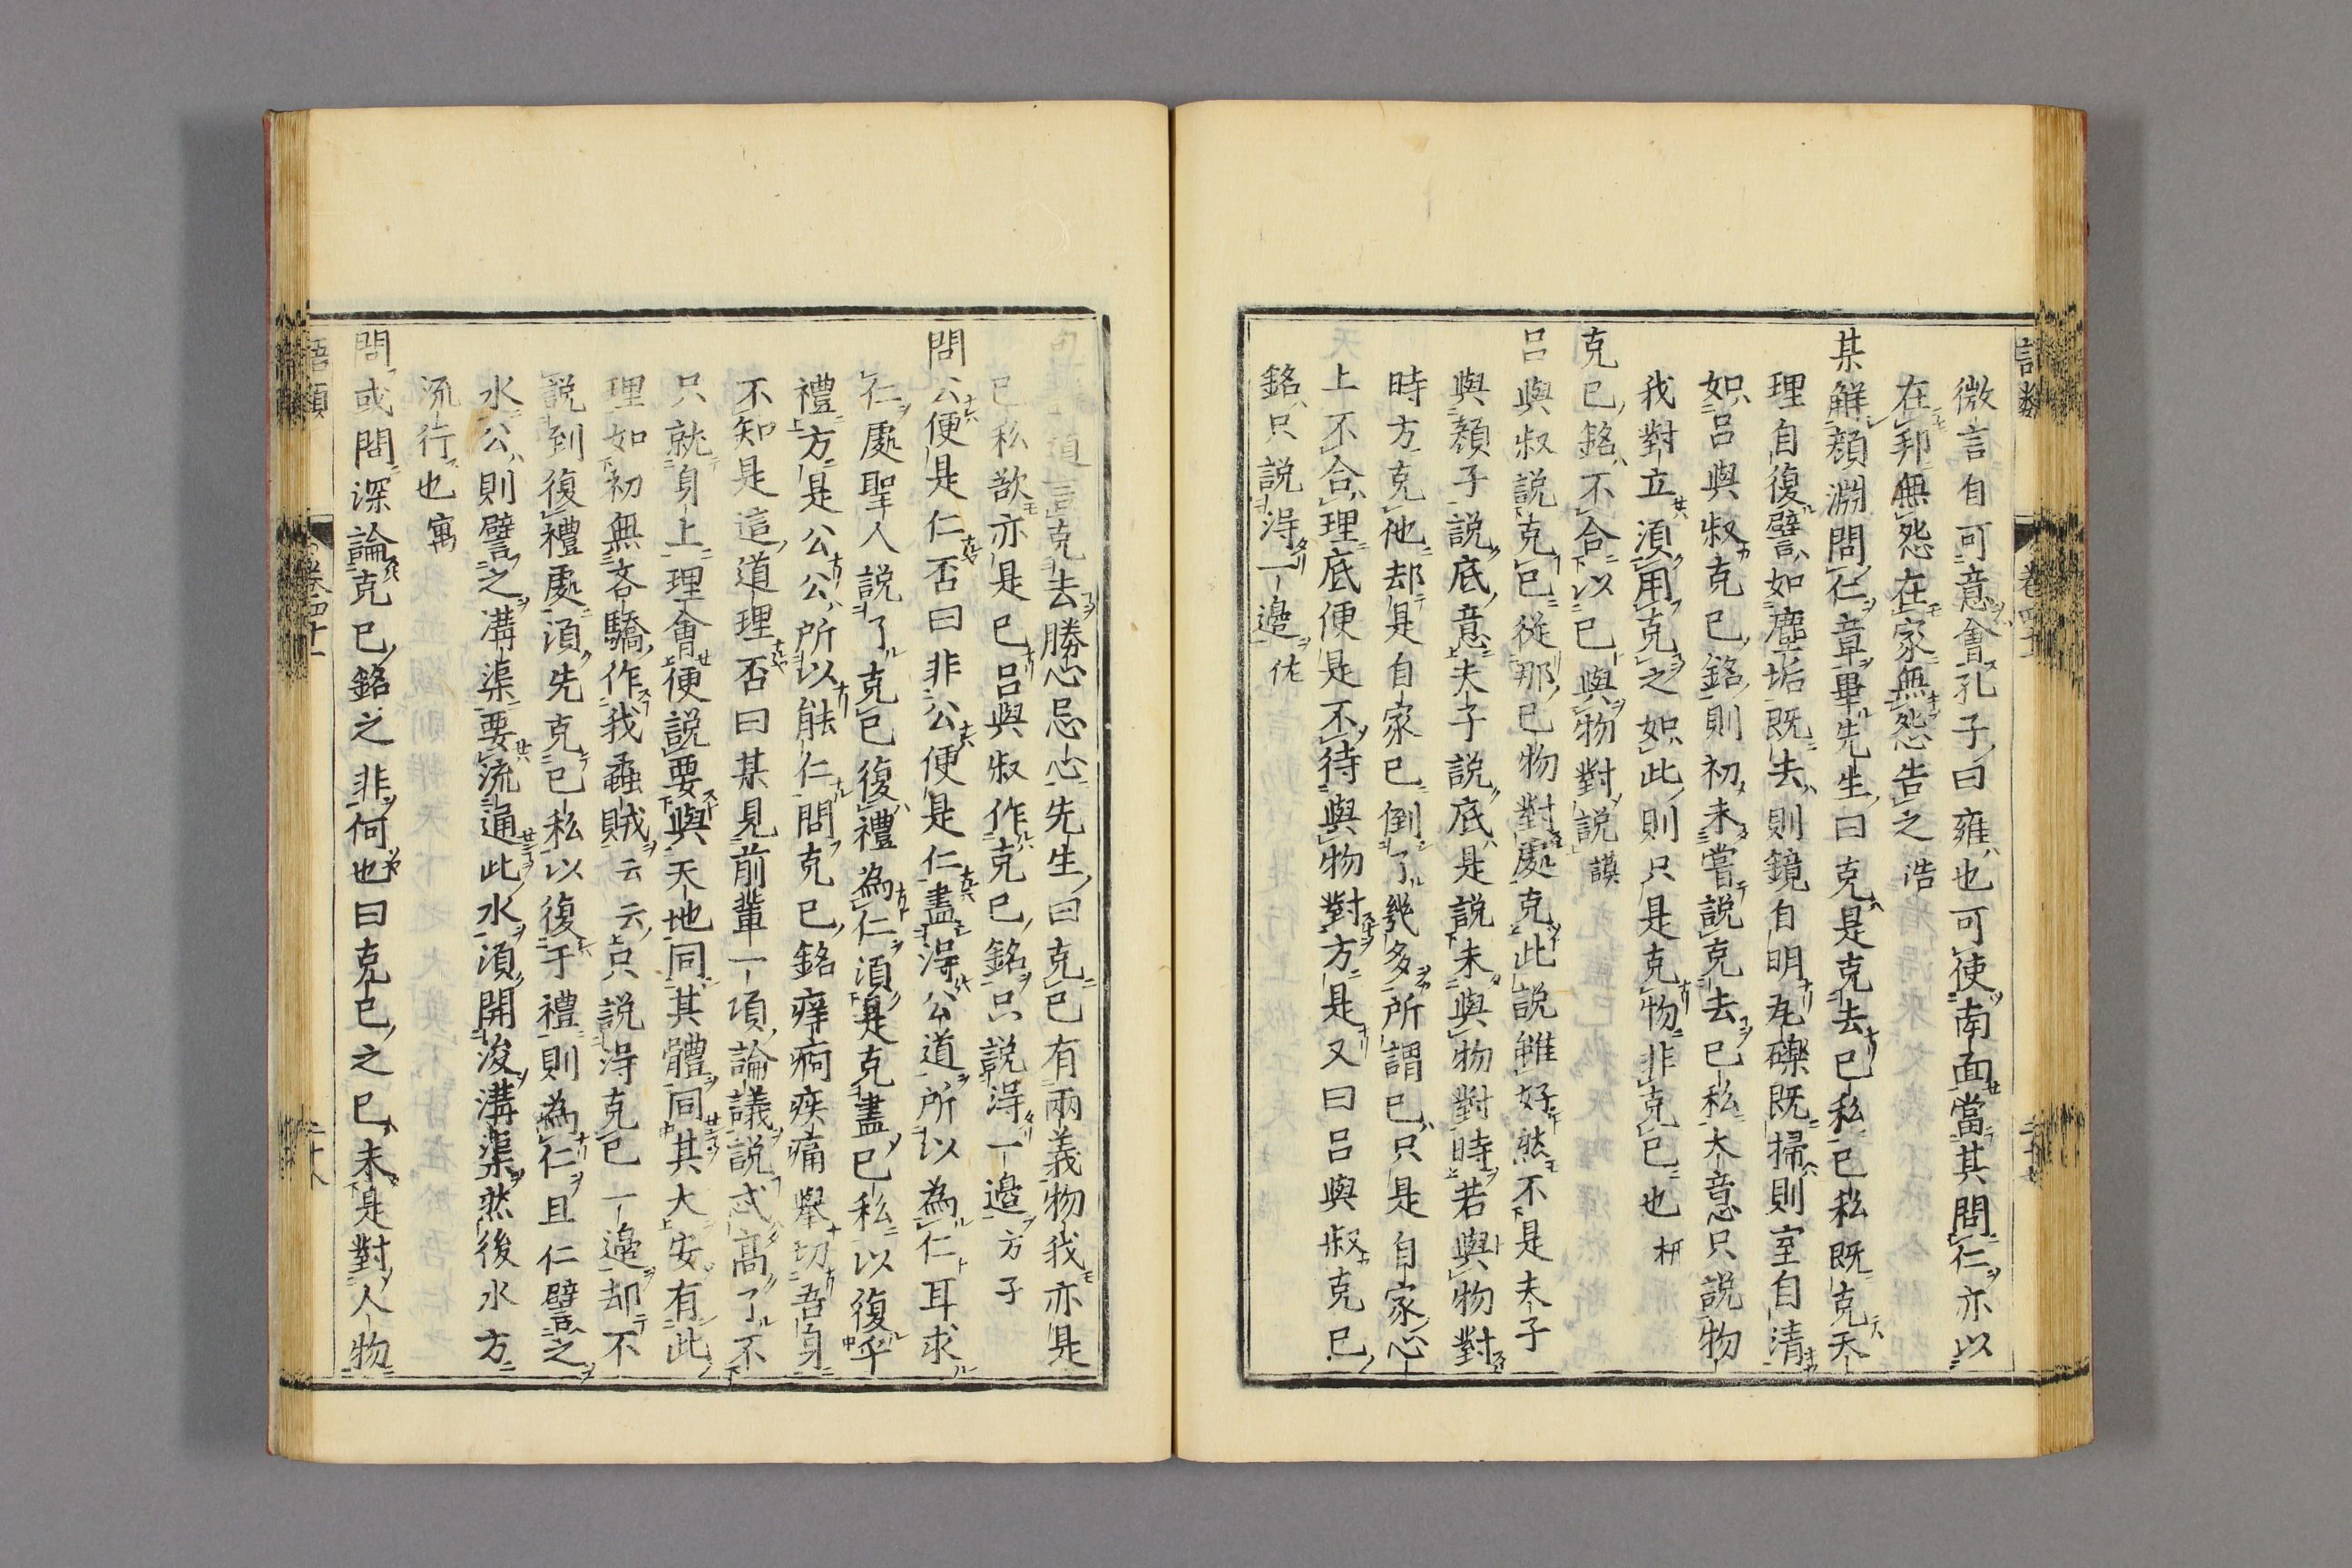 微言自可意會孔子曰雍也可使南面當其問仁亦以
在邦無怨在家無怨告之 浩
某解顏淵問仁章畢先生曰克是克去己私己私既克天
理自復譬如塵垢既去則鏡自明瓦礫既掃則室自清
如呂與叔克己銘則初未嘗說克去己私大意只說物
我對立須用克之如此則只是克物非克己也 枅
克己銘不合以己與物對說 謨
呂與叔說克己從那己物對處克此說雖好然不是夫子
與顏子說底意夫子說底是說未與物對時若與物對
時方克他却是自家己倒了幾多所謂己只是自家心
上不合理底便是不待與物對方是又曰呂與叔克己
銘只說得一邊 佐
道言克去勝心忌心先生曰克己有兩義物我亦是
己私欲亦是己呂與叔作克己銘只說得一邊 方子
問公便是仁否曰非公便是仁盡得公道所以為仁耳求
仁處聖人說了克己復禮為仁須是克盡己私以復乎
禮方是公公所以能仁問克己銘痒痾疾痛舉切吾身
不知是這道理否曰某見前輩一項論議說忒高了不
只就身上理會便說要與天地同其體同其大安有此
理如初無吝驕作我蟊賊云云只說得克己一邊却不
說到復禮處須先克己私以復于禮則為仁且仁譬之
水公則譬之溝渠要流通此水須開浚溝渠然後水方
流行也 㝢
問或問深論克己銘之非何也曰克己之己未是對人物
語類
卷四十一
二十八